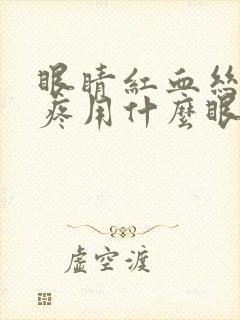 眼睛紅血絲
疼用什麼眼
虛空渡